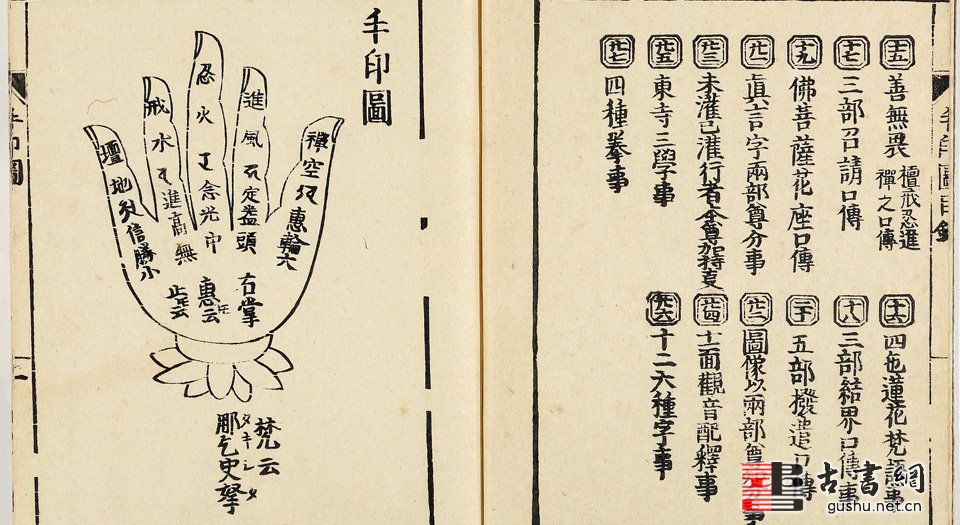 手印圖目錄
十五 善無畏 檀戒忍進
禪之口傳
十六 四色蓮花梵語事
十七 三部召請口傳
十八 三部結界口傳事
十九 佛菩薩花座口傳
二十 五部撥遣口傳
廿一 眞言字兩部尊分事
廿二 圖像以兩部尊
廿三 未灌已灌行者
廿四 十一面觀音配釋事
廿五 東寺三學事
廿六 十二六種字事
廿七 四種拳事
手印圖
禪空 惠輪六
進風 定蓋頭 右掌
忍火 念光中 惠云
戒水 進高無
壇地 信勝小
梵云
那乞史拏
手印圖
一
古書網
gushu.net.cn